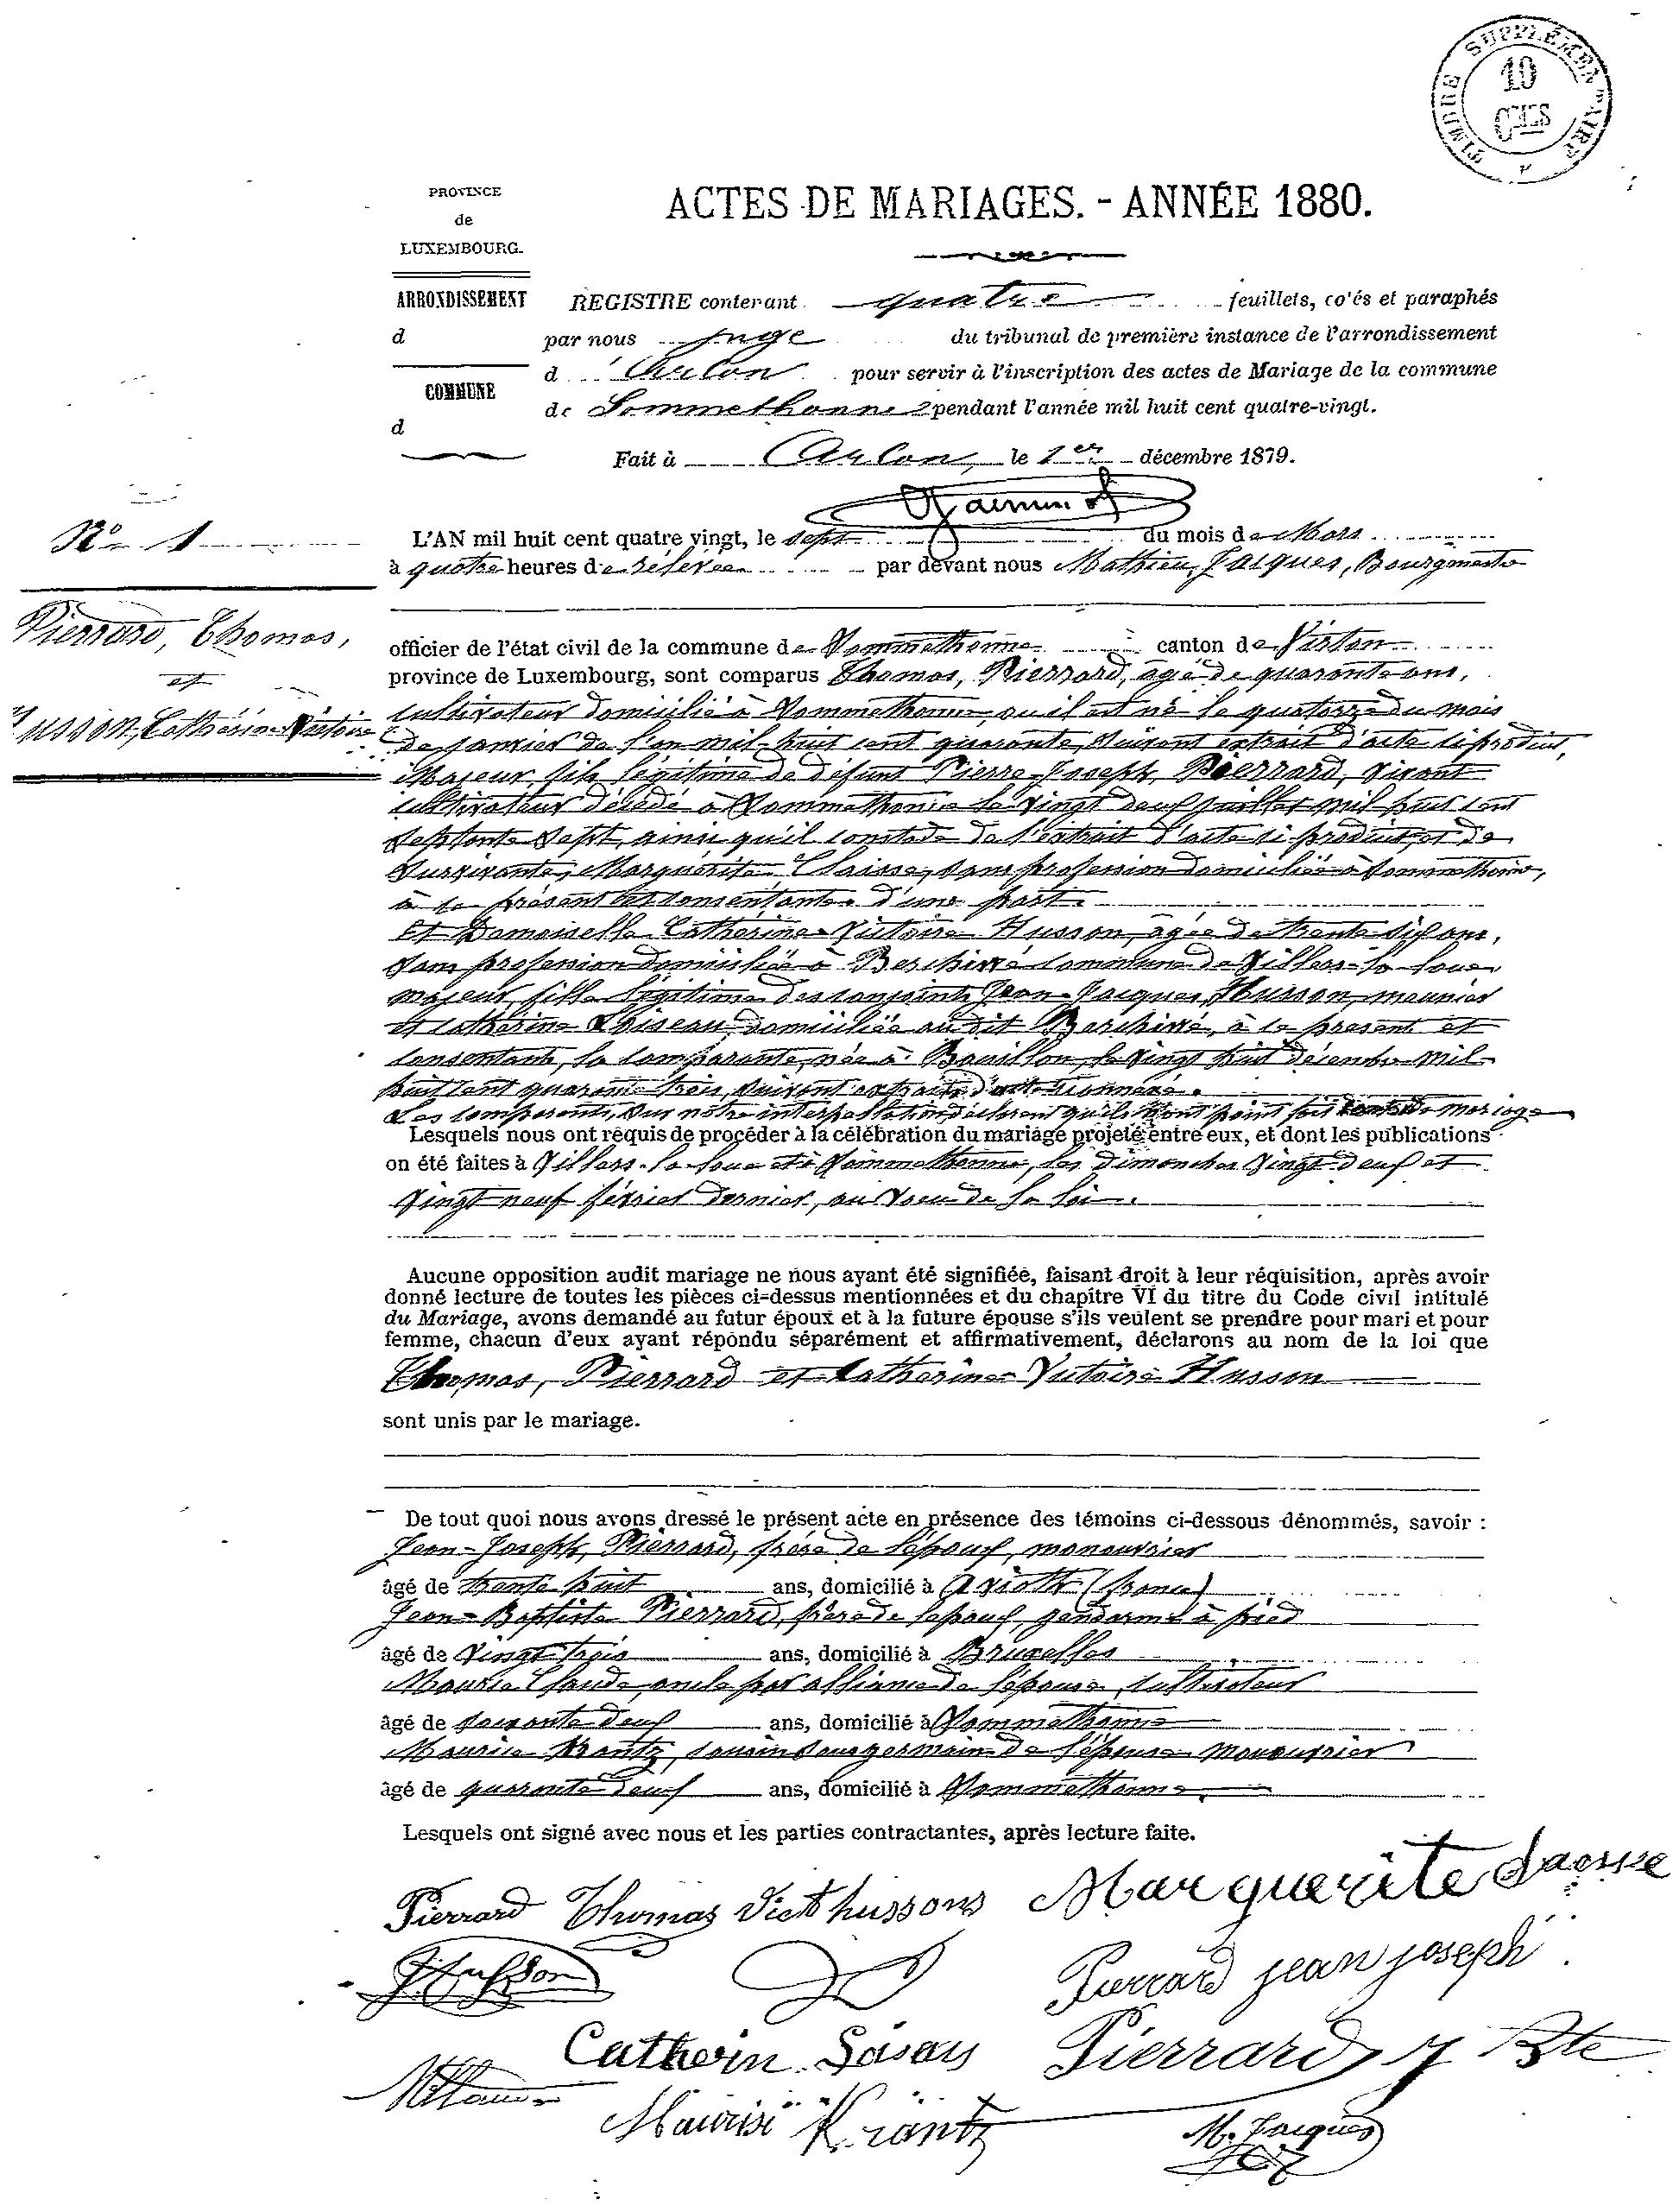 TIMBRE SUPPLÉMENTAIRE
10
CMES
PROVINCE
de
LUXEMBOURG.
ARRONDISSEMENT
d
COMMUNE
d
ACTES DE MARIAGES. - ANNÉE 1880.
REGISTRE contenant quatre feuillets, cotés et paraphés
par nous Juge du tribunal de première instance de l'arrondissement
d Arlon pour servir à l'inscription des actes de Mariage de la commune
de Sommethonne pendant l'année mil huit cent quatre-vingt.
Fait à Arlon, le 1er décembre 1879.
No 1
Pierrard, Thomas,
et
Husson, Cathérine Victoire
L'AN mil huit cent quatre vingt, le sept du mois de Mars
à quatre heures de relevée par devant nous Mathieu, Jacques, Bourgmestre
officier de l'état civil de la commune de Sommethonne canton de Virton
province de Luxembourg, sont comparus Thomas, Pierrard, âgé de quarante ans,
cultivateur domicilié à Sommethonne, où il est né le quatorze du mois
de Janvier de l'an mil huit cent quarante, suivant extrait d'acte ci produit,
Majeur, fils légitime de défunt Pierre-Joseph, Pierrard, vivant
cultivateur décédé à Sommethonne le vingt deux juillet mil huit cent
septante sept, ainsi qu'il conste de l'extrait d'acte ci produit, et de
survivante, Marguérite Claisse, sans profession domiciliée à Sommethonne,
à ce présente et consentante d'une part.
Et Demoiselle Cathérine Victoire Husson, âgée de trente six ans,
sans profession domiciliée à Berchivé commune de Villers-la-loue
majeur, fille légitime des conjoints Jean-Jacques, Husson, meunier
et Cathérine Loiseau, domiciliés au dit Berchivé, à ce présent et
consentants, la comparante, née à Bouillon, le vingt huit décembre mil
huit cent quarante trois, suivant extrait d'acte
Les comparants, sur notre interpellation, déclarent qu'ils n'ont point fait de mariage
Lesquels nous ont requis de procéder à la célébration du mariage projeté entre eux, et dont les publications
on été faites à Villers-la-loue et à Sommethonne, les dimanches vingt deux et
vingt neuf février dernier, au vœu de la loi.
Aucune opposition audit mariage ne nous ayant été signifiée, faisant droit à leur réquisition, après avoir
donné lecture de toutes les pièces ci-dessus mentionnées et du chapitre VI du titre du Code civil intitulé
du Mariage, avons demandé au futur époux et à la future épouse s'ils veulent se prendre pour mari et pour
femme, chacun d'eux ayant répondu séparément et affirmativement, déclarons au nom de la loi que
Thomas, Pierrard et Cathérine Victoire Husson
sont unis par le mariage.
De tout quoi nous avons dressé le présent acte en présence des témoins ci-dessous dénommés, savoir :
Jean-Joseph, Pierrard, frère de l'époux, manouvrier
âgé de trente huit ans, domicilié à Avioth (france)
Jean-Baptiste Pierrard, frère de l'époux, gendarme à pied
âgé de vingt trois ans, domicilié à Bruxelles
Maurice Claude, oncle par alliance de l'épouse, cultivateur
âgé de soixante deux ans, domicilié à Sommethonne
Maurice Krantz, cousin sous germain de l'épouse manouvrier
âgé de quarante deux ans, domicilié à Sommethonne.
Lesquels ont signé avec nous et les parties contractantes, après lecture faite.
Pierrard Thomas Vict hussons Marguerite
J. Husson
Pierrard jean joseph
Catherin
Pierrard J Bte
Maurise Krantz
M. Jacques